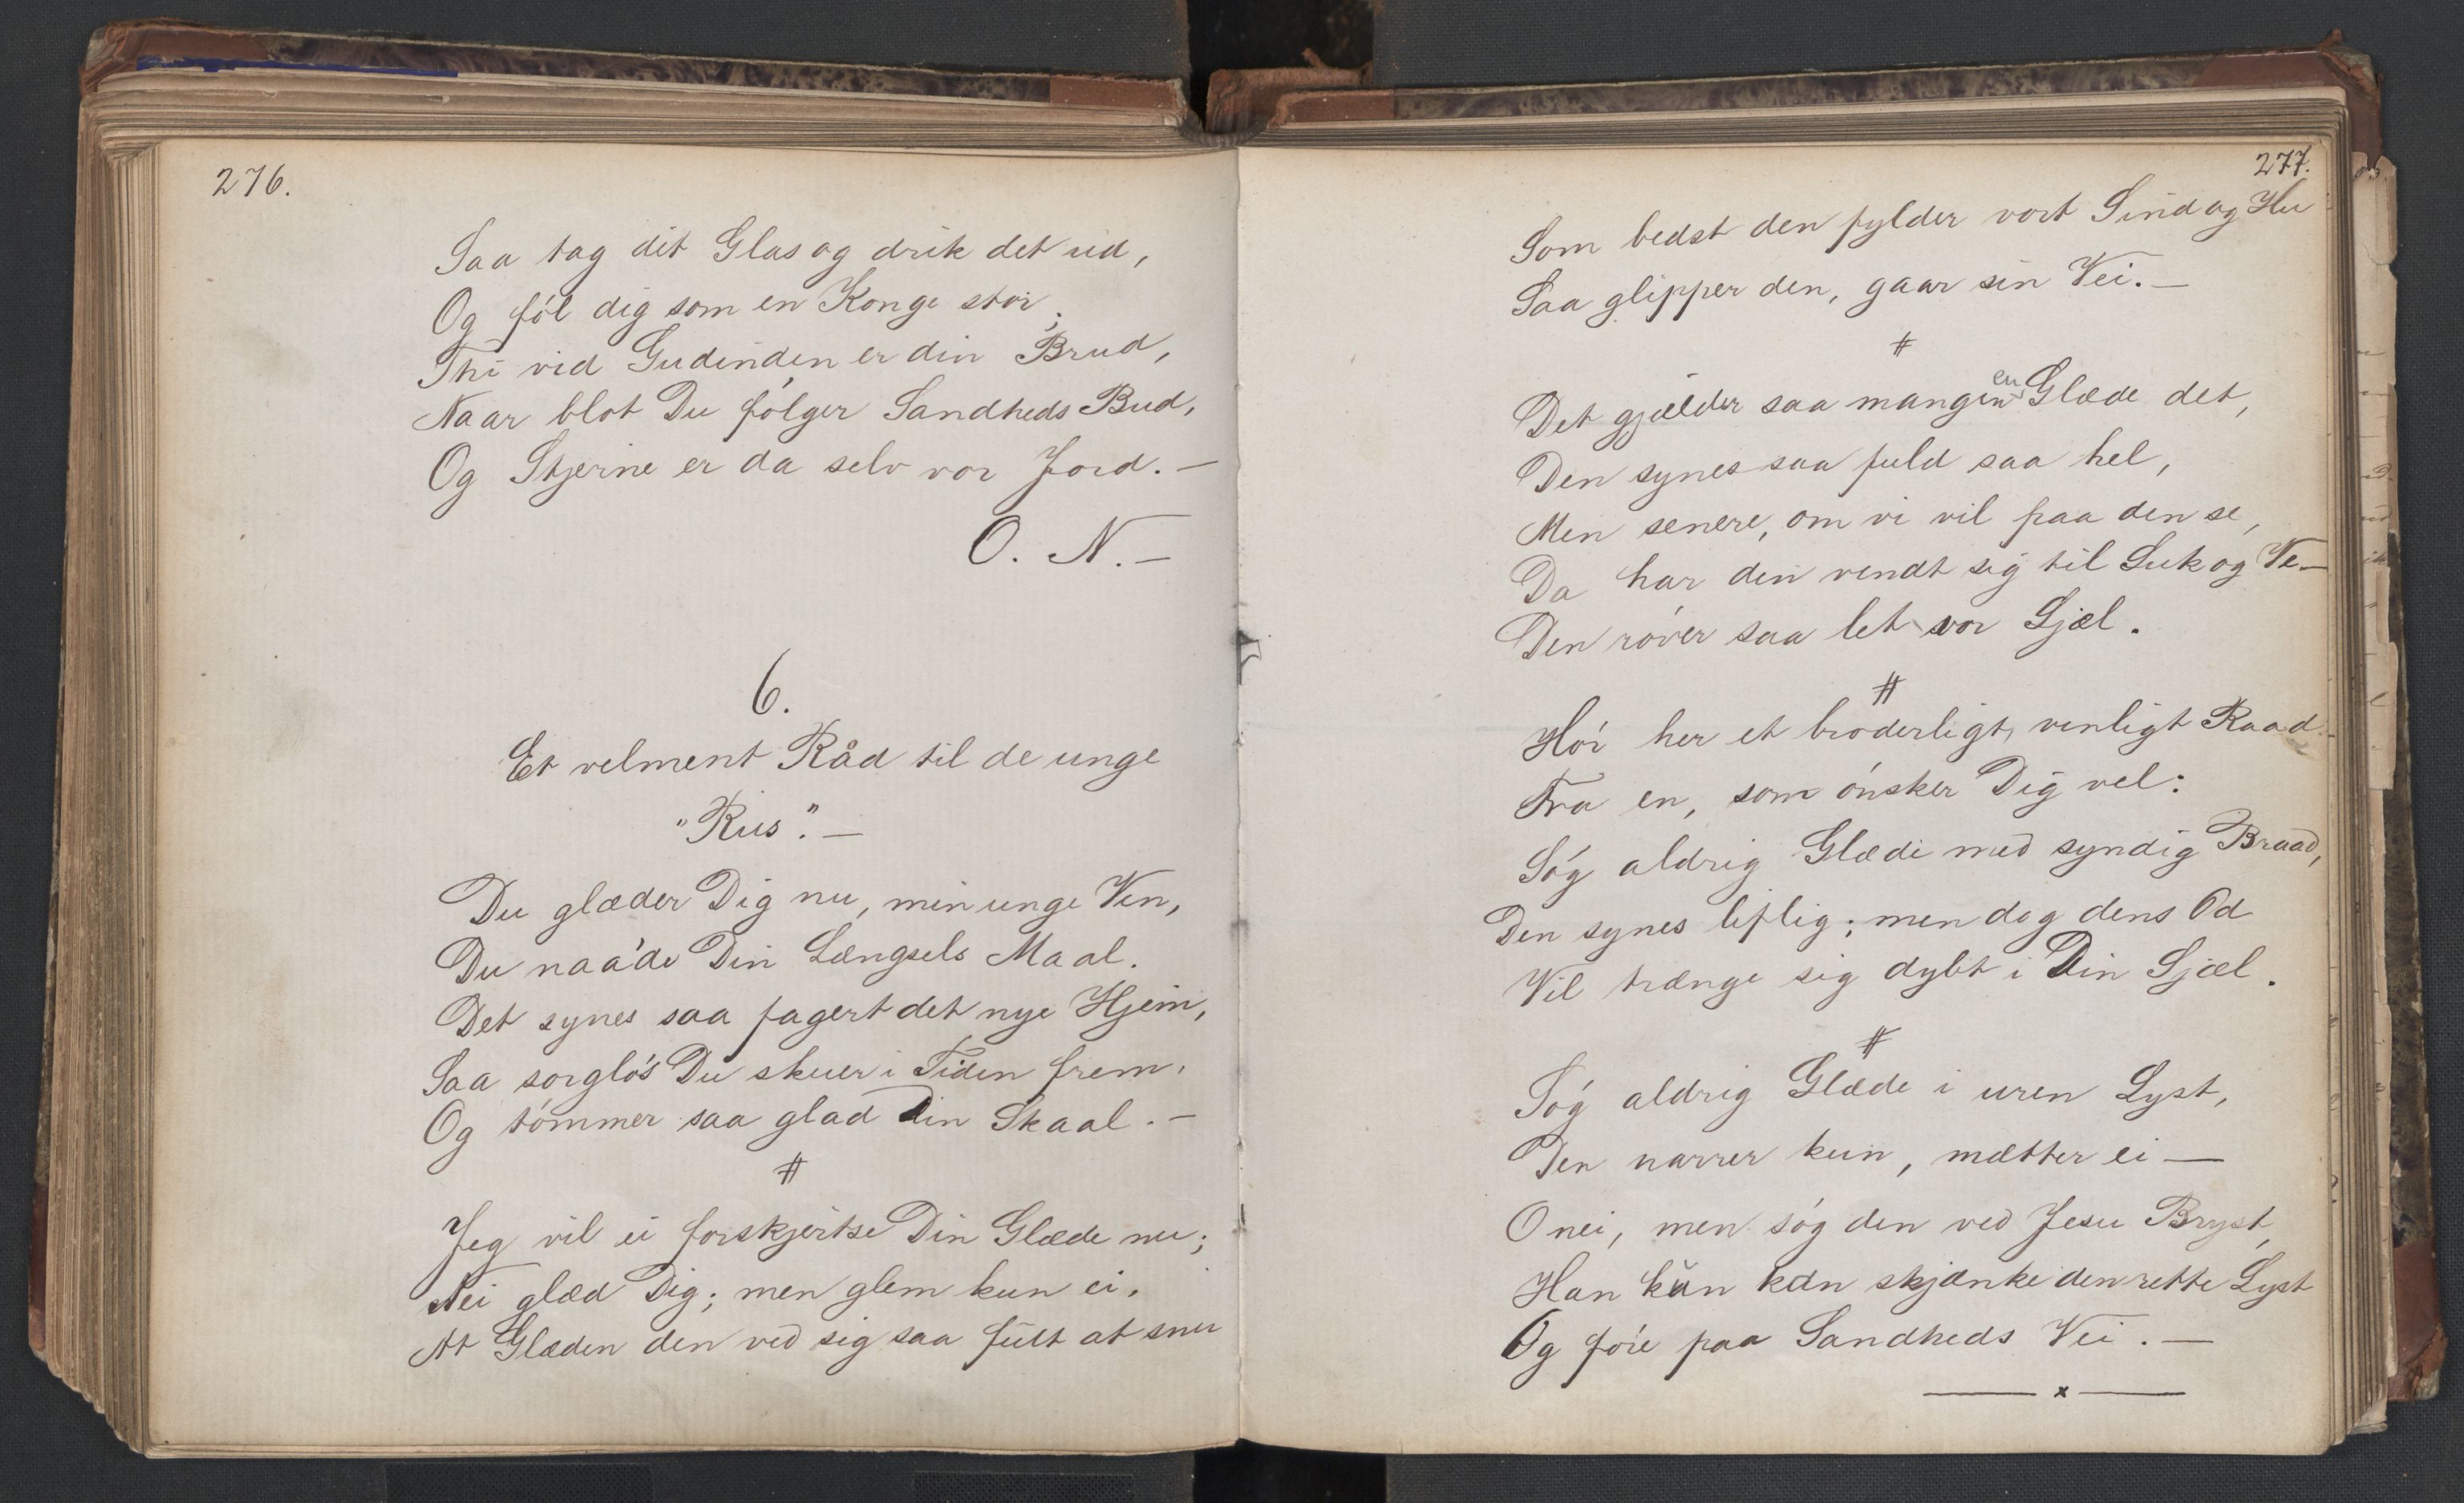 276.
Saa tag dit Glas og drik det ud,
Og föl dig som en Konge stor;
Thi vid Gudinden er din Brud,
Naar blot Du fölger Sandheds Bud,
Og Stjerne er da selv vor Jord. —
O. N. —
6.
Et velment Råd til de unge
"Rus". —
Du glæder Dig nu, min unge Ven,
Du naade Din Længsels Maal.
Det synes saa fagert det nye Hjem,
Saa sorglös Du skuer i Tiden frem,
Og tömmer saa glad Din Skaal. —
#
Jeg vil ei forskjertse Din Glæde nu;
Nei glæd Dig; men glem kun ei,
At Glæden den ved sig saa fult at snu
277.
Som bedst den fylder vort Sind og Hu
Saa glipper den, gaar sin Vei. —
#
Det gjælder saa mangen en Glæde det,
Den synes saa fuld saa hel,
Men senere, om vi vil paa den se,
Da har den vendt sig til Suk og Ve —
Den röver saa let vor Sjæl.
#
Hör her et broderligt, venligt Raad
Fra en, som önsker Dig vel:
Sög aldrig Glæde med syndig Braad,
Den synes liflig; men dog dens Od
Vil trænge sig dybt i Din Sjæl.
#
Sög aldrig Glæde i uren Lyst,
Den narrer kun, mætter ei —
O nei, men sög den ved Jesu Bryst,
Han kun kan skjænke den rette Lyst
Og före paa Sandheds Vei. —
— x —